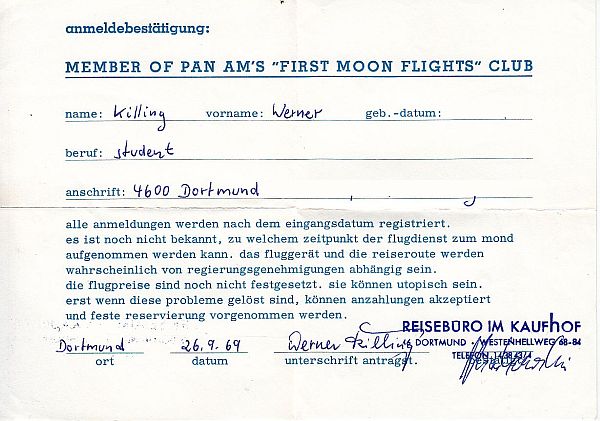 anmeldebestätigung:
MEMBER OF PAN AM'S "FIRST MOON FLIGHTS" CLUB
name: Killing vorname: Werner geb.-datum:
beruf: student
anschrift: 4600 Dortmund
alle anmeldungen werden nach dem eingangsdatum registriert.
es ist noch nicht bekannt, zu welchem zeitpunkt der flugdienst zum mond
aufgenommen werden kann. das fluggerät und die reiseroute werden
wahrscheinlich von regierungsgenehmigungen abhängig sein.
die flugpreise sind noch nicht festgesetzt. sie können utopisch sein.
erst wenn diese probleme gelöst sind, können anzahlungen akzeptiert
und feste reservierung vorgenommen werden.
REISEBÜRO IM KAUFHOF
DORTMUND · WESTENHELLWEG 68-84
TELEFON
Dortmund 26.9.69 Werner Killing
ort datum unterschrift antragst.